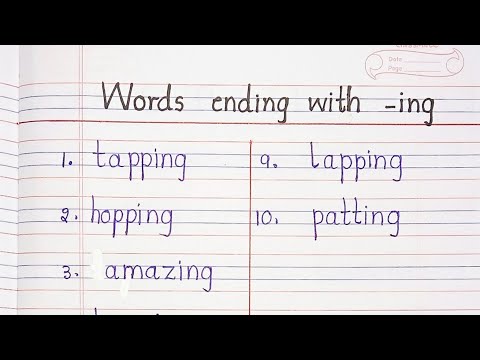 Date
Page
Words ending with -ing
1. tapping
2. hopping
3. amazing
9. lapping
10. patting